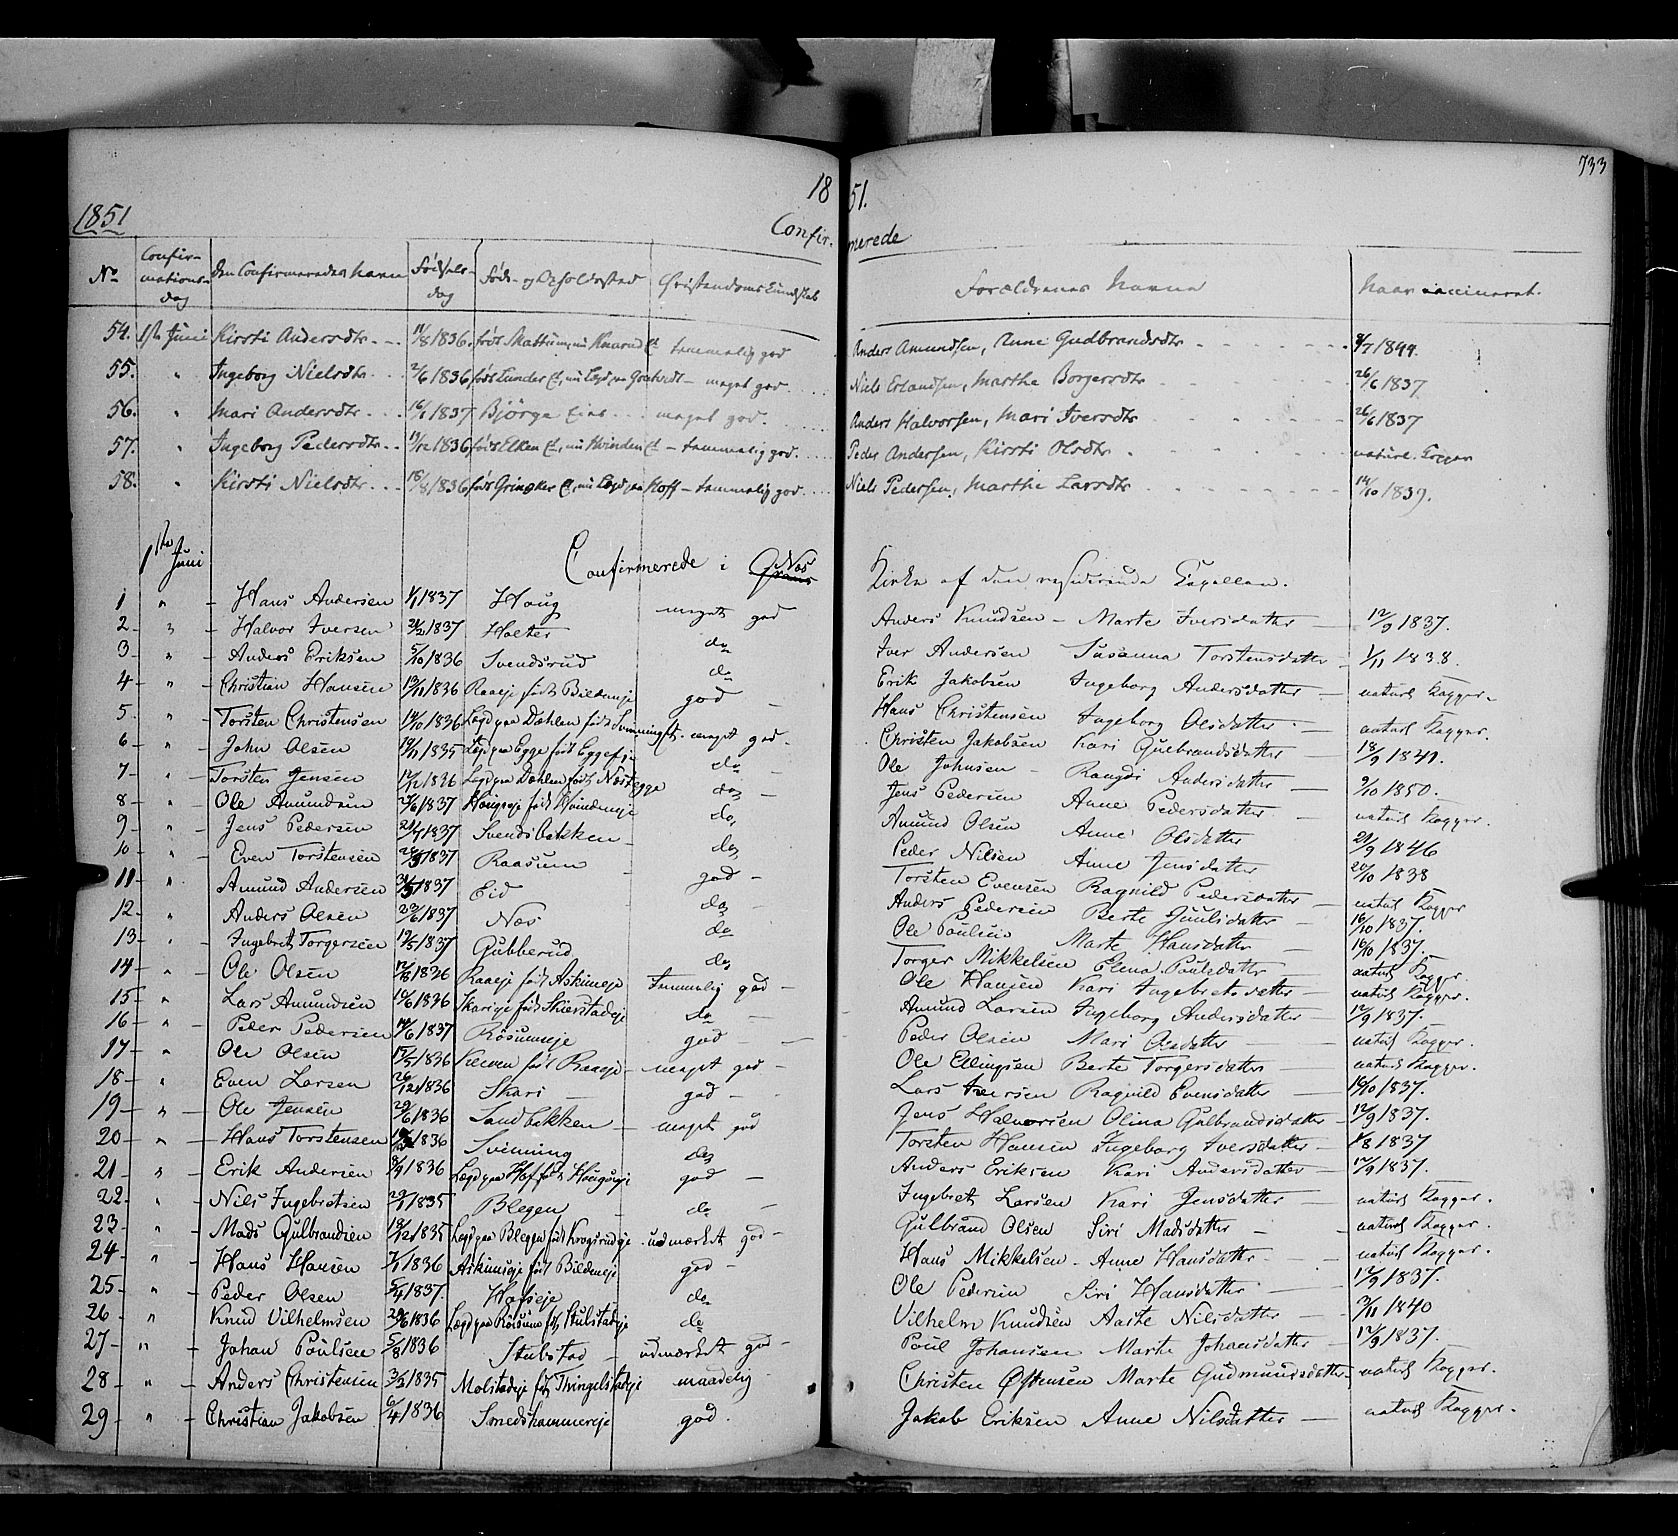 733
1851
18 51.
Confirmerede
No Confirmationsdag Den Confirmeredes Navn Fødselsdag Føde- og Opholdssted Christendoms Kundskab Forældrenes Navne Naar vaccineret.
54. 1ste Juni Kirsti Andersdtr. 11/8 1836. født Skattum, nu Knarud E. temmelig god Anders Amundsen, Anne Gudbrandsdtr 1844.
55. " Ingeborg Nielsdtr. 2/6 1836 født Lunder E., nu Lægd paa - meget god Niels Erlandsen, Marthe Borgersdtr 26/6 1837
56. " Mari Andersdtr. 16/1 1837 Bjørge Eie meget god. Anders Halvorsen, Mari Iversdtr 26/6 1837
57. " Ingeborg Pedersdtr. 19/12 1836 født Elken E., nu Hvinden E. - temmelig god. Peder Andersen, Kirsti Olsdtr. naturl. Kopper
58. " Kirsti Nielsdtr. 18/6 1836 født Grinaker E., nu Lægd paa Hoff - temmelig god. Niels Pedersen, Marthe Larsdtr 14/10 1839.
1ste Juni Confirmerede i Næs Kirke af den residerende Capellan.
1 " - Hans Andersen 1/1 1837 Haug meget god Anders Knudsen - Marte Iversdatter - 12/9 1837.
2 " - Halvor Iversen 21/2 1837 Holter do Iver Andersen Susanna Torstensdatter - 1/11 1838.
3 " - Anders Eriksen 5/10 1836 Svendsrud do Erik Jakobsen Ingeborg Andersdatter - naturl Kopper.
4 " - Christian Hansen 13/11 1836 Raaeje født Bildeneje god - Hans Christensen Ingeborg Olsdatter - naturl Kopper.
5. " - Torsten Christensen 14/10 1836 Lægd paa Dæhlen født Svinningst. meget god. Christen Jakobsen Kari Gulbrandsdatter 18/9 1841.
6 " - John Olsen 19/11 1835 Lægd paa Egge født Eggeeje do Ole Johnsen - Rangdi Andersdatter - 9/10 1850.
7 " - Torsten Jensen 12/12 1836 Lægd paa Dæhlen født Næsegge do - Jens Pedersen Anne Pedersdatter - naturl Kopper.
8 " - Ole Amundsen 27/6 1837 Haugseje født Hvindeneje do Amund Olsen Anne Olsdatter 21/9 1846
9 " - Jens Pedersen 21/7 1837 Svendsbakken - do Peder Nilsen Anne Jensdatter - 20/10 1838
10 " - Even Torstensen 28/3 1837 Raasum - god - Torsten Evensen Ragnild Pedersdatter - naturl Kopper
11 " Amund Andersen 31/5 1837 Eid do Anders Pedersen Berte Guulsdatter - 16/10 1837.
12 " Anders Olsen 22/6 1837 Næs do Ole Poulsen Marte Hansdatter - 16/10 1837.
13 " Ingebret Torgersen 19/5 1837 Gubberud do Torger Mikkelsen Elena Poulsdatter - naturl Kopper.
14 " Ole Olsen 1836 Raaeje født Askimeje temmelig god - Ole Hansen Kari Ingebretsdatter - naturl Kopper.
15 " Lars Amundsen 10/6 1836 Skarieje født Skierstadeje do - Amund Larsen Ingeborg Andersdatter - 12/9 1837.
16 " Peder Pedersen 14/6 1837 Røsumeje god - Peder Olsen Mari Olsdatter - naturl Kopper.
17 " Ole Olsen 17/5 1836 født Raaeje - meget god - Ole Ellingsen Berte Torgersdatter - naturl Kopper.
18 " Even Larsen 26/12 1836 Skari - god - Lars Iversen Ragnild Evensdatter - 16/10 1837.
19 " Ole Jensen 29/6 1836 Sandbakken - meget god Jens Halvorsen Olina Gulbrandsdatter - 12/9 1837.
20 " - Hans Torstensen 1836 Svinning do Torsten Hansen Ingeborg Iversdatter - 1837
21 " Erik Andersen 8/9 1836 Lægd paa Hof født Haugseje god - Anders Eriksen Kari Andersdatter - 12/9 1837.
22 " Nils Ingebretsen 1835 Blegen - do - Ingebret Larsen Kari Jensdatter - naturl Kopper.
23 " Mads Gulbrandsen 18/12 1835 Lægd paa Blegen født Krogsrudeje udmærket god - Gulbrand Olsen Siri Madsdatter - naturl Kopper.
24 " Hans Hansen 1836 Askimeje født Bildeneje god - Hans Mikkelsen - Anne Hansdatter - naturl Kopper.
25 " Peder Olsen 5/4 1837 Hofseje do Ole Pedersen Siri Hansdatter - 12/9 1837.
26 " Knud Vilhelmsen 29/6 1836 Lægd paa Røisum født Stubstadeje do Vilhelm Knudsen Aaste Nilsdatter - 2/11 1840
27 " - Johan Poulsen 5/8 1836 Stubstad - udmærket god - Poul Johansen Marte Johansdatter - 12/9 1837.
28 " Anders Christensen 3/3 1835 Molstadeje født Thingelstadeje maadelig Christen Østensen Marte Gudmundsdatter - naturl Kopper.
29 " Christian Jakobsen 6/4 1836 Smedshammereje god. Jakob Eriksen Anne Nilsdatter - naturl Kopper.